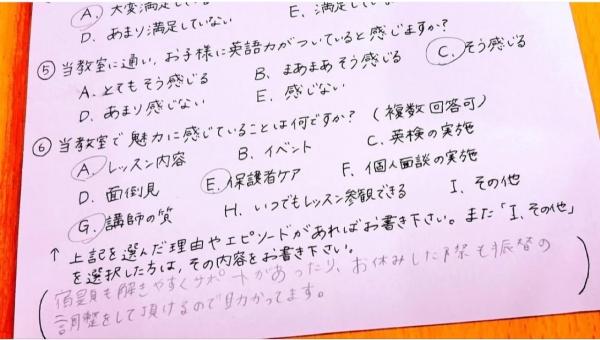 A. 大変満足している E. 満足していない
D. あまり満足していない
⑤ 当教室に通い、お子様に英語力がついていると感じますか?
A. とてもそう感じる B. まあまあそう感じる C. そう感じる
D. あまり感じない E. 感じない
⑥ 当教室で魅力に感じていることは何ですか? (複数回答可)
A. レッスン内容 B. イベント C. 英検の実施
D. 面倒見 E. 保護者ケア F. 個人面談の実施
G. 講師の質 H. いつでもレッスン参観できる I. その他
↑ 上記を選んだ理由やエピソードがあればお書き下さい。また「I. その他」
を選択した方は、その内容をお書き下さい。
宿題も解きやすくサポートがあったり、お休みした際も振替の
調整をして頂けるので助かってます。